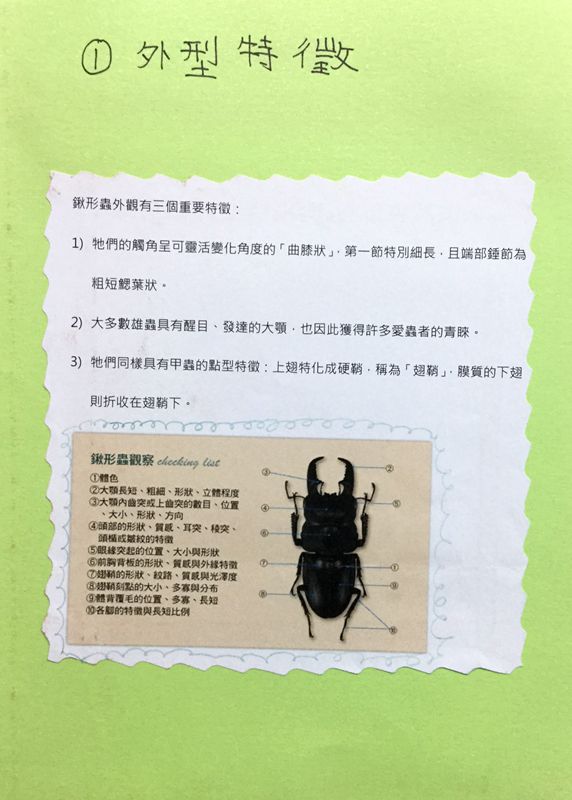 ① 外型特徵
鍬形蟲外觀有三個重要特徵：
1) 牠們的觸角呈可靈活變化角度的「曲膝狀」，第一節特別細長，且端部錘節為
粗短鰓葉狀。
2) 大多數雄蟲具有醒目、發達的大顎，也因此獲得許多愛蟲者的青睞。
3) 牠們同樣具有甲蟲的點型特徵：上翅特化成硬鞘，稱為「翅鞘」，膜質的下翅
則折收在翅鞘下。
鍬形蟲觀察 checking list
①體色
②大顎長短、粗細、形狀、立體程度
③大顎內齒突或上齒突的數目、位置
、大小、形狀、方向
④頭部的形狀、質感、耳突、稜突、
頭楯或皺紋的特徵
⑤眼緣突起的位置、大小與形狀
⑥前胸背板的形狀、質感與外緣特徵
⑦翅鞘的形狀、紋路、質感與光澤度
⑧翅鞘刻點的大小、多寡與分布
⑨體背覆毛的位置、多寡、長短
⑩各腳的特徵與長短比例
③ ②
④ ⑤
⑥
⑦ ①
⑧ ⑨
⑩